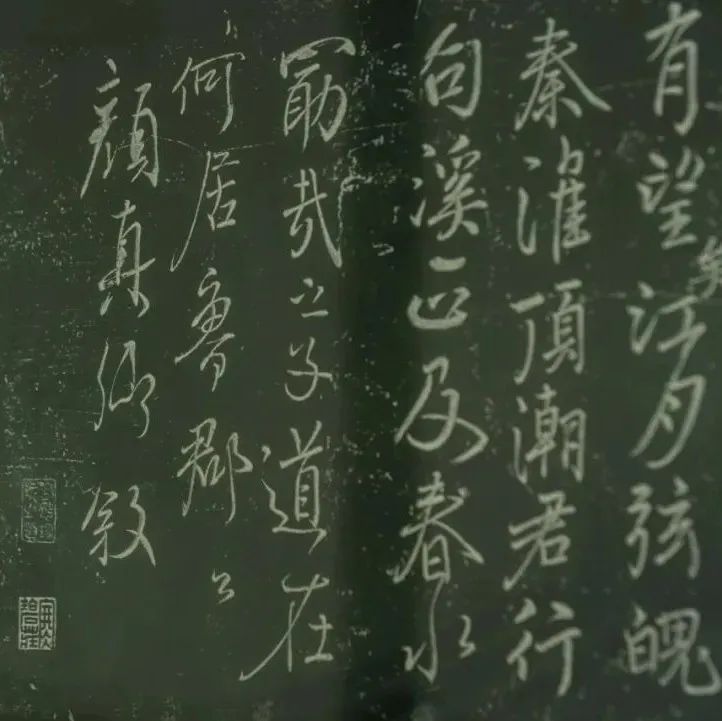 有望矣江月弦魄
秦淮頂潮君行
句溪正及春水
勗哉之子道在
何居魯郡公
顏真卿叙